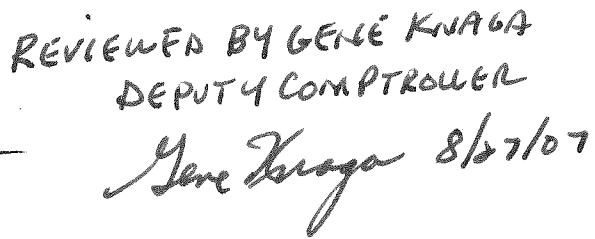 REVIEWED BY GENE KNAGA
DEPUTY COMPTROLLER
Gene Knaga 8/27/07